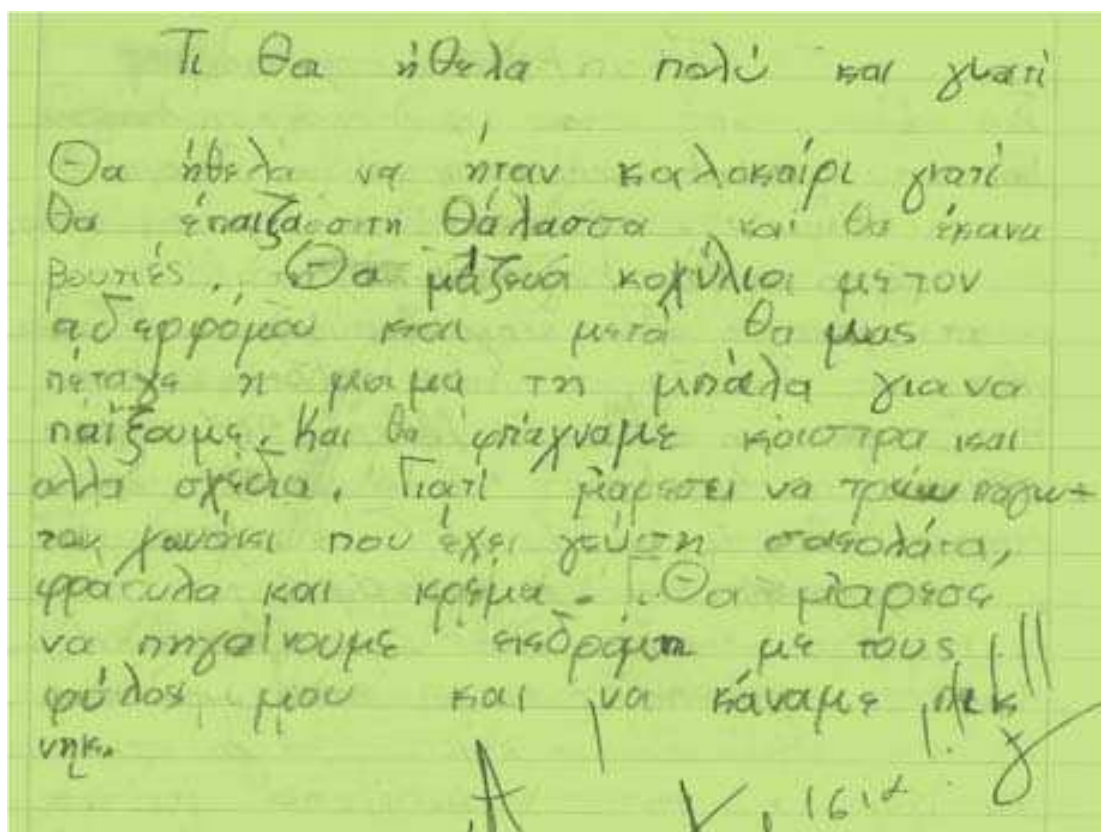 Τι θα ήθελα πολύ και γιατί
Θα ήθελα να ήταν καλοκαίρι γιατί
θα έπαιζα στη θάλασσα και θα έκανα
βουτιές. Θα μάζευα κοχύλια με τον
αδερφόμου και μετά θα μας
πέταγε η μαμα τη μπάλα για να
παίξουμε. Και θα φτιάχναμε κάστρα και
αλλα σχέδια. Γιατί μαρέσει να τρώω παγω-
που έχει γεύση σακολάτα,
φράουλα και κρέμα. Θα μαρεσε
να πηγαίνουμε εκδρομη με τους
φύλος μου και να κάναμε πικ
νηκ.